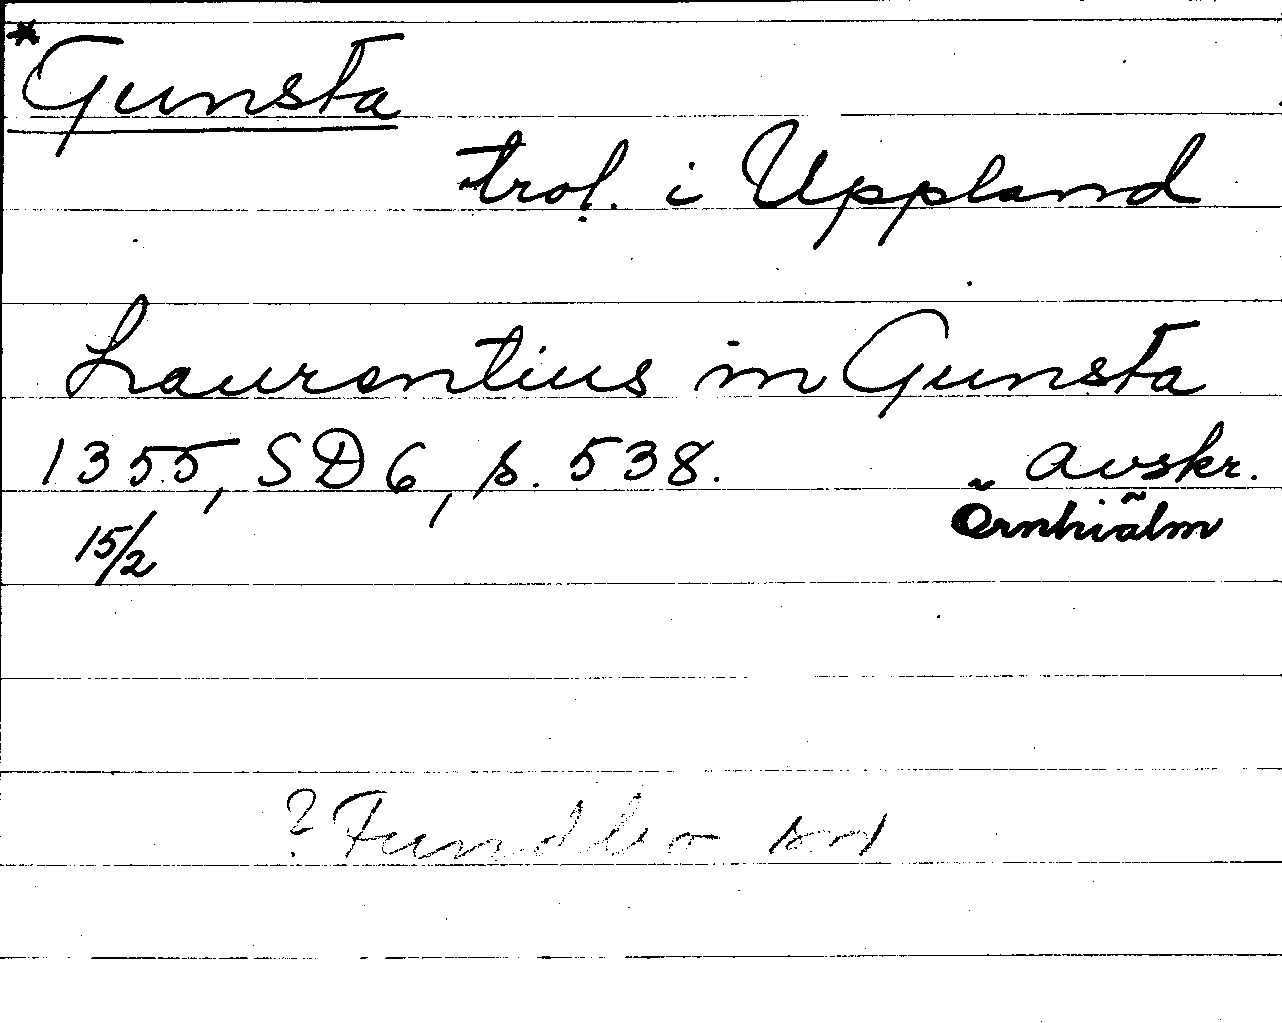 *Gunsta
trol. i Uppland
Laurentius in Gunsta
1355, SD 6, s. 538. avskr.
15/2 Örnhiälm
? Fundbo sn